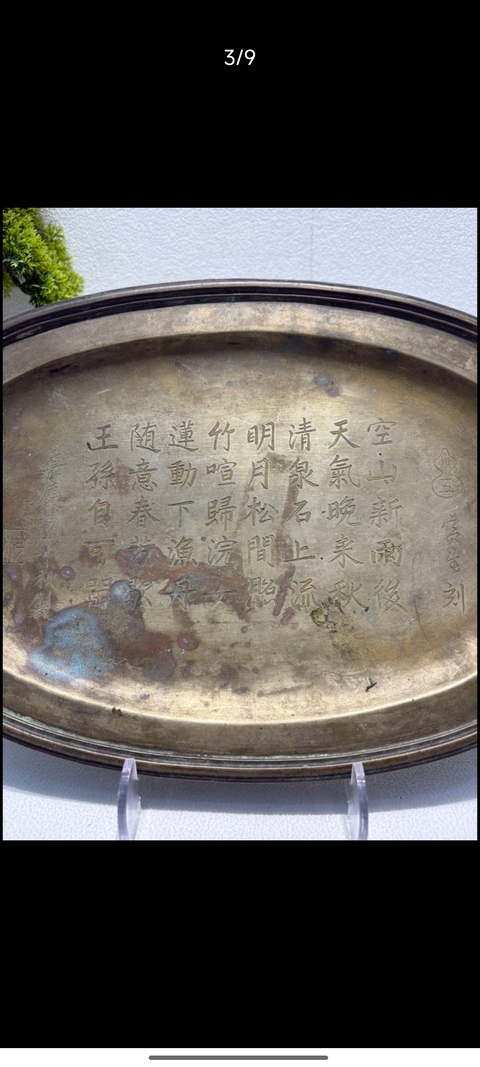 3/9
刻
空山新雨後
天氣晚来秋
清泉石上流
明月松間照
竹喧歸浣女
蓮動下漁舟
随意春芳歇
王孫自可